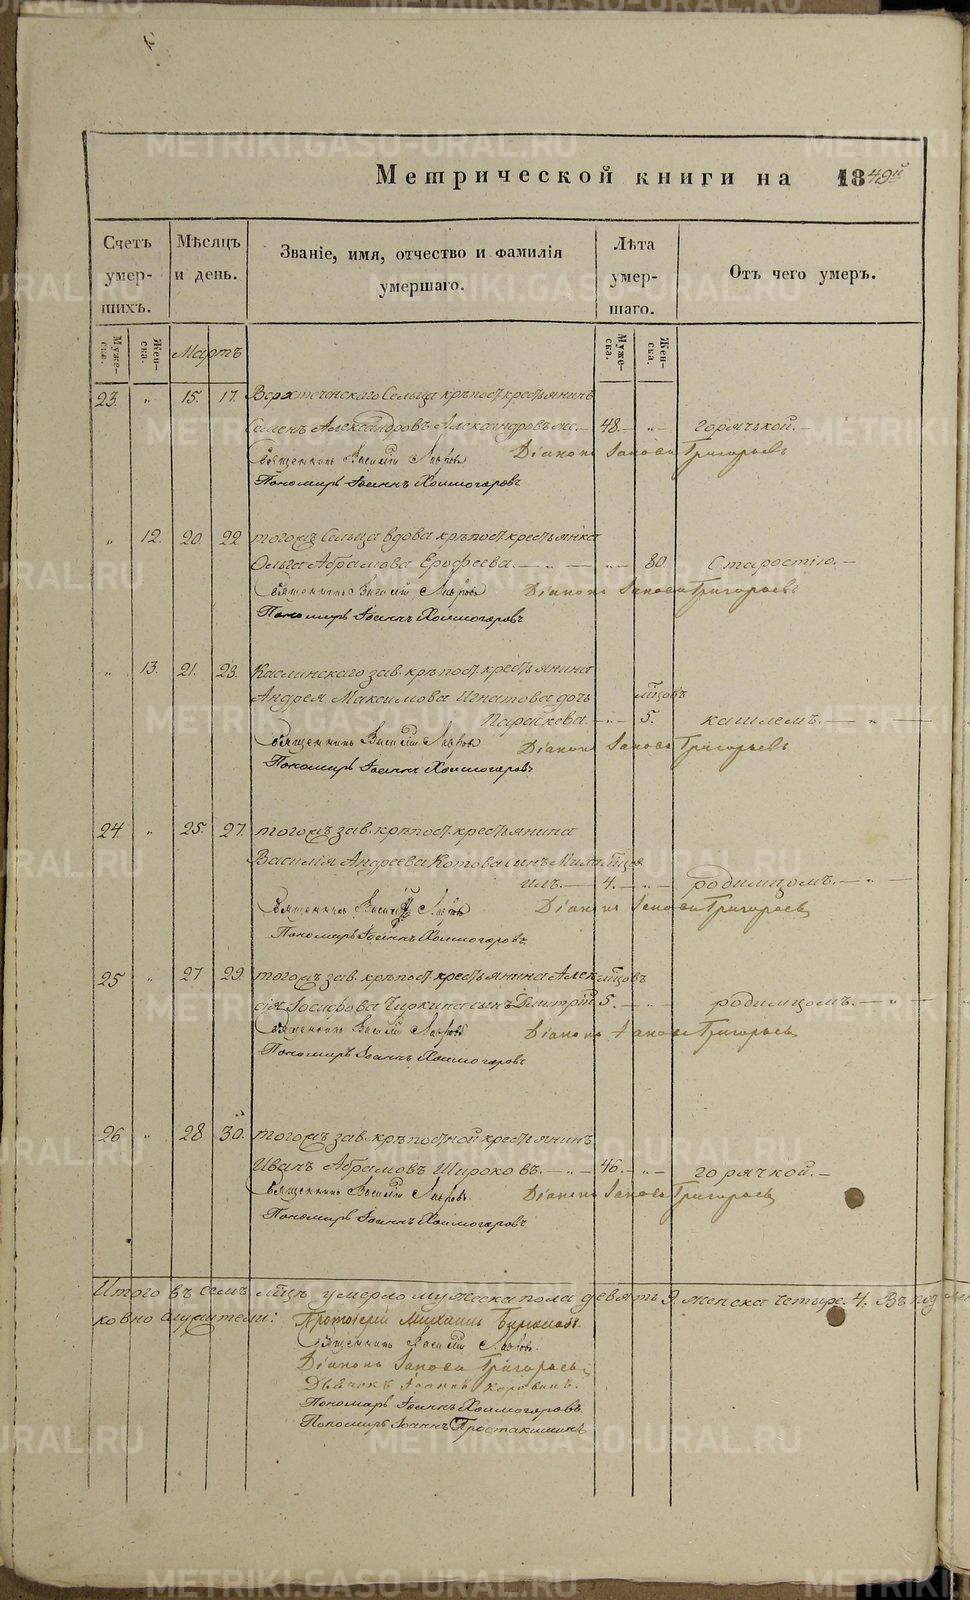 Метрической книги на 1849й
Счетъ умер- шихъ.
Мѣсяцъ и день.
Званіе, имя, отчество и фамилія умершаго.
Лѣта умер- шаго.
Отъ чего умеръ.
Муже- ска.
Жен- ска.
Мартъ
Муже- ска.
Жен- ска.
23. „ 15. 17. Верхтеченскаго Сельца крѣпост крестьянинъ
Семенъ Александровъ Александровыхъ.— 48.— „— горячькой.—
Священникъ Василій Діаконъ Іаковъ Григорьевъ
Пономарь Іоаннъ Холмогоровъ
„ 12. 20. 22 тогожъ Сельца вдова крѣпост крестьянка
Ольга Абрамова Ерофеева.— „— 80. Старостію.—
Священникъ Василій Діаконъ Іаковъ Григорьевъ
Пономарь Іоаннъ Холмогоровъ
„ 13. 21. 23. Каслинскаго зав. крѣпост. крестьянина
Андрея Максимова Игнатова дочь мцовъ
Параскева.— „— 5. кашлемъ.— „ —
Священникъ Василій Діаконъ Іаковъ Григорьевъ
Пономарь Іоаннъ Холмогоровъ
24. „ 25. 27. тогожъ зав. крѣпост. крестьянина
Василія Андреева Котова сынъ Миха- мцов
илъ.— 4.— „— родимцомъ.— „ —
Священникъ Василій Діаконъ Іаковъ Григорьевъ
Пономарь Іоаннъ Холмогоровъ
25 „ 27 29 тогожъ зав. крѣпост. крестьянина Алек- мцовъ
сія Іосифова Чиркина сынъ Димитрій 5.— „— родимцомъ.— „ —
Священникъ Василій Діаконъ Іаковъ Григорьевъ
Пономарь Іоаннъ Холмогоровъ
26 „ 28 30. тогожъ зав. крѣпостной крестьянинъ
Иванъ Абрамовъ Широковъ.— „— 46.— „— горячкой.—
Священникъ Василій Діаконъ Іаковъ Григорьевъ
Пономарь Іоаннъ Холмогоровъ
Итого въ семъ мцѣ умерло мужеска пола девять 9. женска четыре 4. Въ
ковно служители: Протоіерей Михаилъ Бирюковъ
Священникъ Василій
Діаконъ Іаковъ Григорьевъ
Дьячокъ Іоаннъ Коровинъ.
Пономарь Іоаннъ Холмогоровъ
Пономарь Іоаннъ Простакишинъ
METRIKI.GASO-URAL.RU